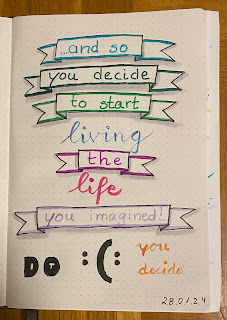 ...and so
you decide
to start
living
the
life
you imagined!..
DO :(: you
decide
28.01.24